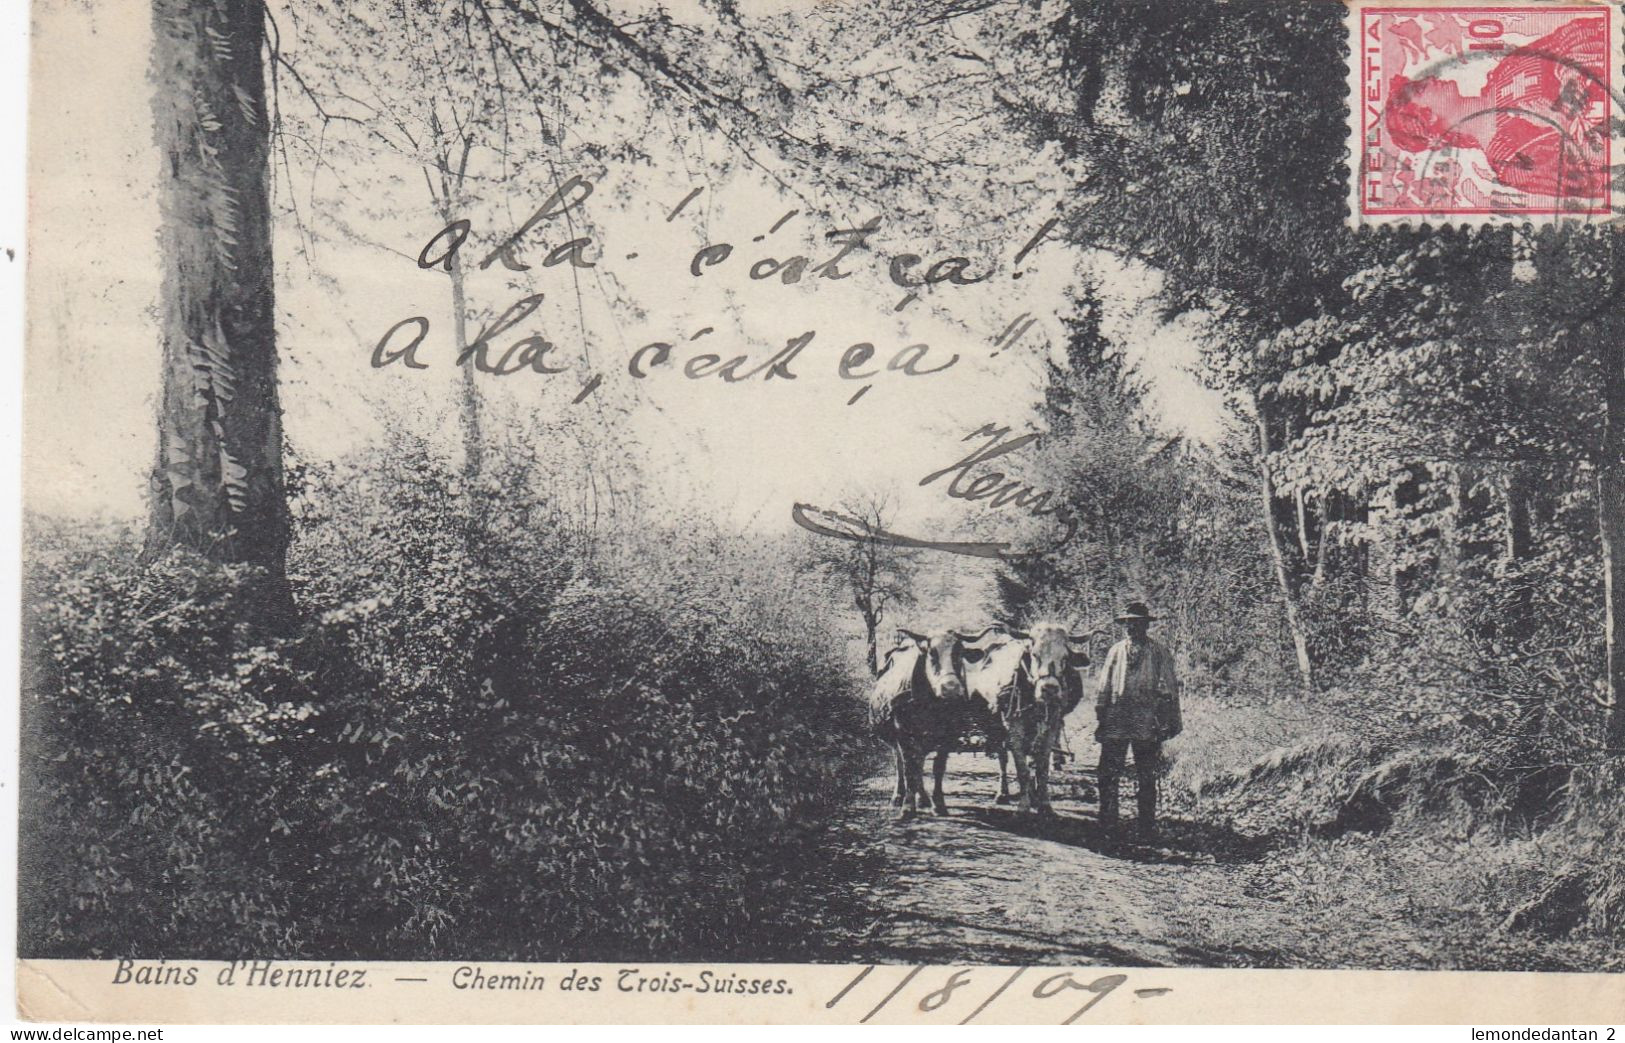 HELVETIA
10
aha! c'est ça!
aha, c'est ça!!
Bains d'Henniez. — Chemin des Trois-Suisses. 1/8/09-
lemondedantan_2